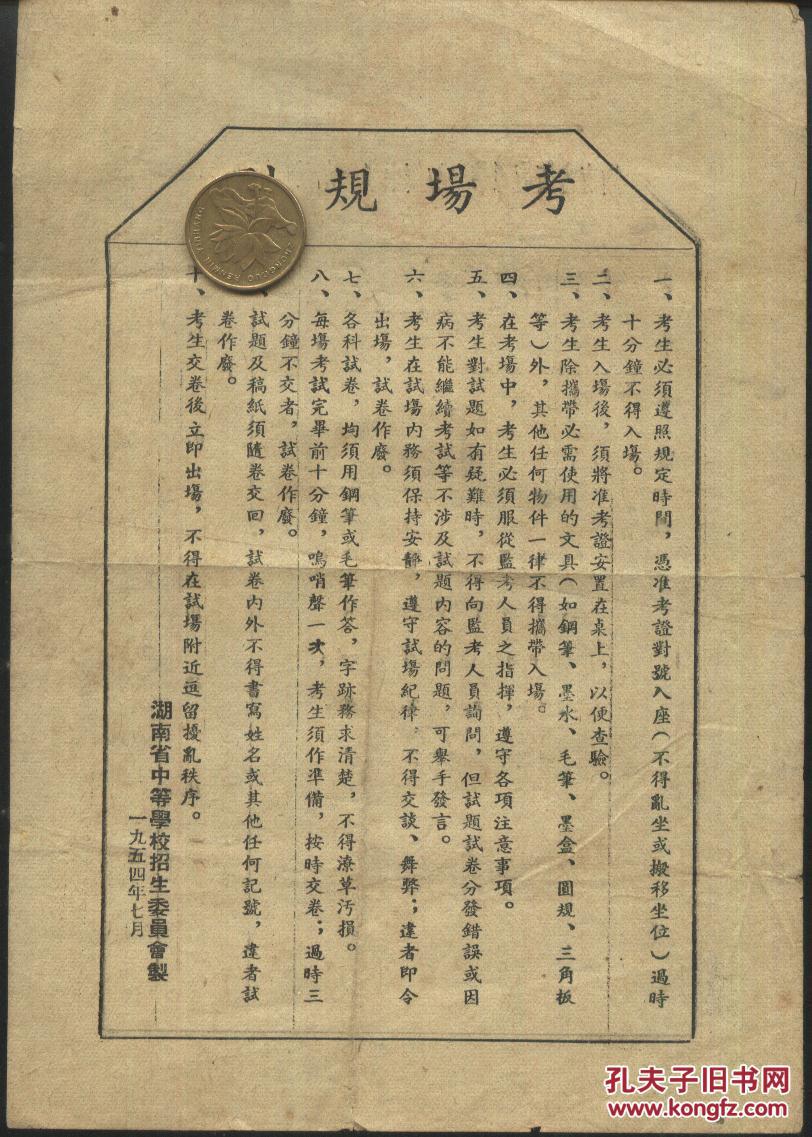 考場規
一、考生必須遵照規定時間，憑准考證對號入座（不得亂坐或搬移坐位）過時
十分鐘不得入場。
二、考生入場後，須將准考證安置在桌上，以便查驗。
三、考生除攜帶必需使用的文具（如鋼筆、墨水、毛筆、墨盒、圓規、三角板
等）外，其他任何物件一律不得攜帶入場。
四、在考場中，考生必須服從監考人員之指揮，遵守各項注意事項。
五、考生對試題如有疑難時，不得向監考人員詢問，但試題試卷分發錯誤或因
病不能繼續考試等不涉及試題內容的問題，可舉手發言。
六、考生在試場內務須保持安靜，遵守試場紀律，不得交談、舞弊；違者即令
出場，試卷作廢。
七、各科試卷，均須用鋼筆或毛筆作答，字跡務求清楚，不得潦草汚損。
八、每場考試完畢前十分鐘，鳴哨聲一次，考生須作準備，按時交卷；過時三
分鐘不交者，試卷作廢。
、試題及稿紙須隨卷交回，試卷內外不得書寫姓名或其他任何記號，違者試
卷作廢。
十、考生交卷後立即出場，不得在試場附近逗留擾亂秩序。
湖南省中等學校招生委員會製
一九五四年七月
ZHONGGUO RENMIN YINHANG
孔夫子旧书网
www.kongfz.com